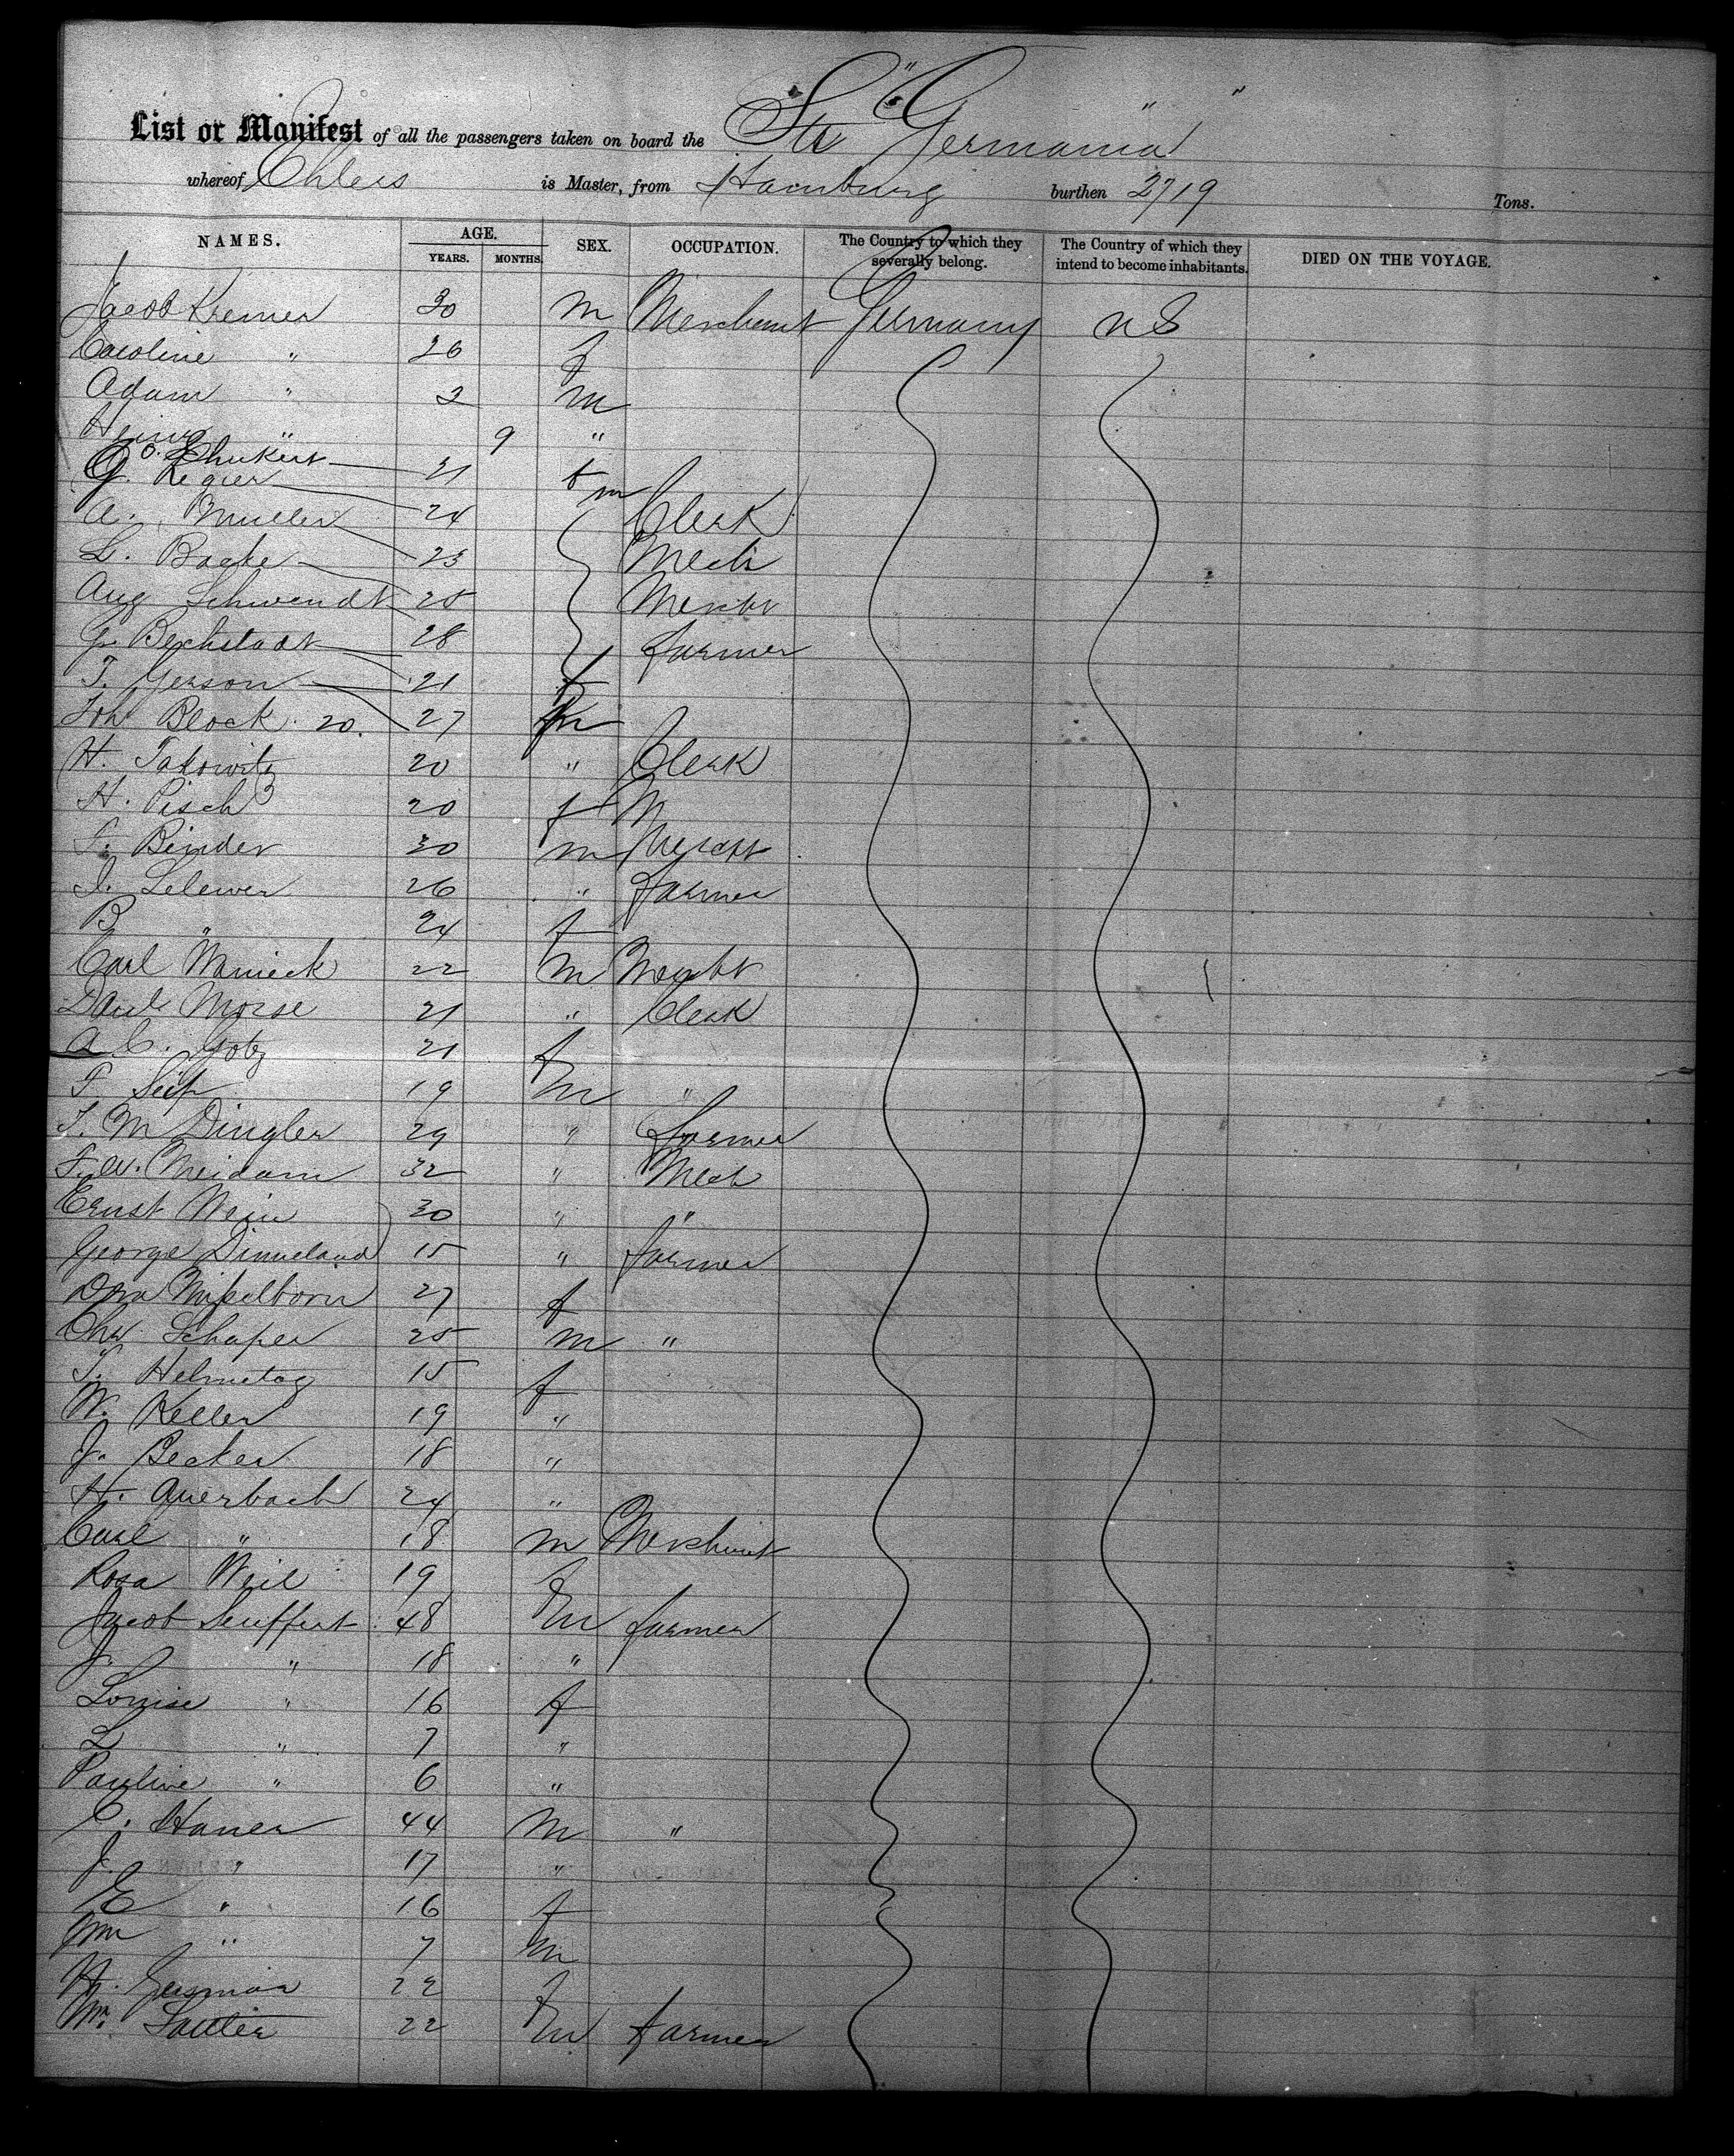 List or Manifest of all the passengers taken on board the Str "Germania"
whereof Ehlers is Master, from Hamburg burthen 2719 Tons.
NAMES. AGE. YEARS. MONTHS. SEX. OCCUPATION. The Country to which they severally belong. The Country of which they intend to become inhabitants. DIED ON THE VOYAGE.
Jacob Kremer 30 m Merchant Germany US
Caroline " 26 f
Adam " 3 m
Heinr " 9 "
O.
G. Regier 21 f m
A. Muller 24 Clerk
L. Backe 23 Mech
Aug Schwendt 25 Mercht
G. Bechstadt 28 farmer
T. Gerson 21 f
Joh Block 20. 27 m
H. Takowitz 20 " Clerk
H. Pisch 20 f
F. Binder 30 m Mercht
I. Lelewer 26 " farmer
B " 24 f
Carl Warnieck 22 m Mercht
Paul Morse 21 " Clerk
A. C. Gotz 21 f
F Seip 19 m "
T. M Dingler 29 " farmer
F. W. Meidam 32 " Mech
Ernst Wein 30 " "
George Dinneland 15 " farmer
Dora 27 f
Chr Schaper 25 m "
T. Helmetag 15 f
W. Keller 19 "
J. Becker 18 "
H. Auerbach 24 "
Carl " 18 m Merchant
Rosa Weil 19 f
Jacob Seuffert 48 m farmer
J. " 18 "
Louise " 16 f
L " 7 "
Pauline " 6 "
C. Hauer 44 m "
J. " 17 "
E " 16 f
Wm " 7 m
H. 22 f
Wm. Sautier 22 m farmer